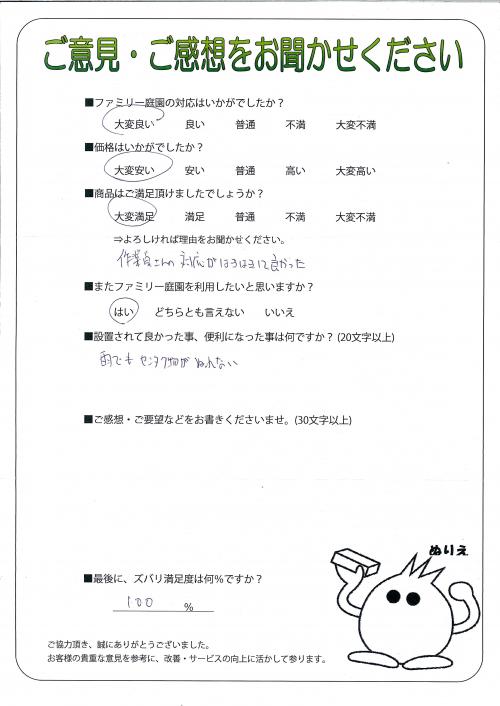 ご意見・ご感想をお聞かせください
■ファミリー庭園の対応はいかがでしたか？
大変良い 良い 普通 不満 大変不満
■価格はいかがでしたか？
大変安い 安い 普通 高い 大変高い
■商品はご満足頂けましたでしょうか？
大変満足 満足 普通 不満 大変不満
⇒よろしければ理由をお聞かせください。
作業員さんの対応がはきはきして良かった
■またファミリー庭園を利用したいと思いますか？
はい どちらとも言えない いいえ
■設置されて良かった事、便利になった事は何ですか？(20文字以上)
雨でもセンタク物がぬれない
■ご感想・ご要望などをお書きくださいませ。(30文字以上)
ぬりえ
■最後に、ズバリ満足度は何％ですか？
100 ％
ご協力頂き、誠にありがとうございました。
お客様の貴重な意見を参考に、改善・サービスの向上に活かして参ります。